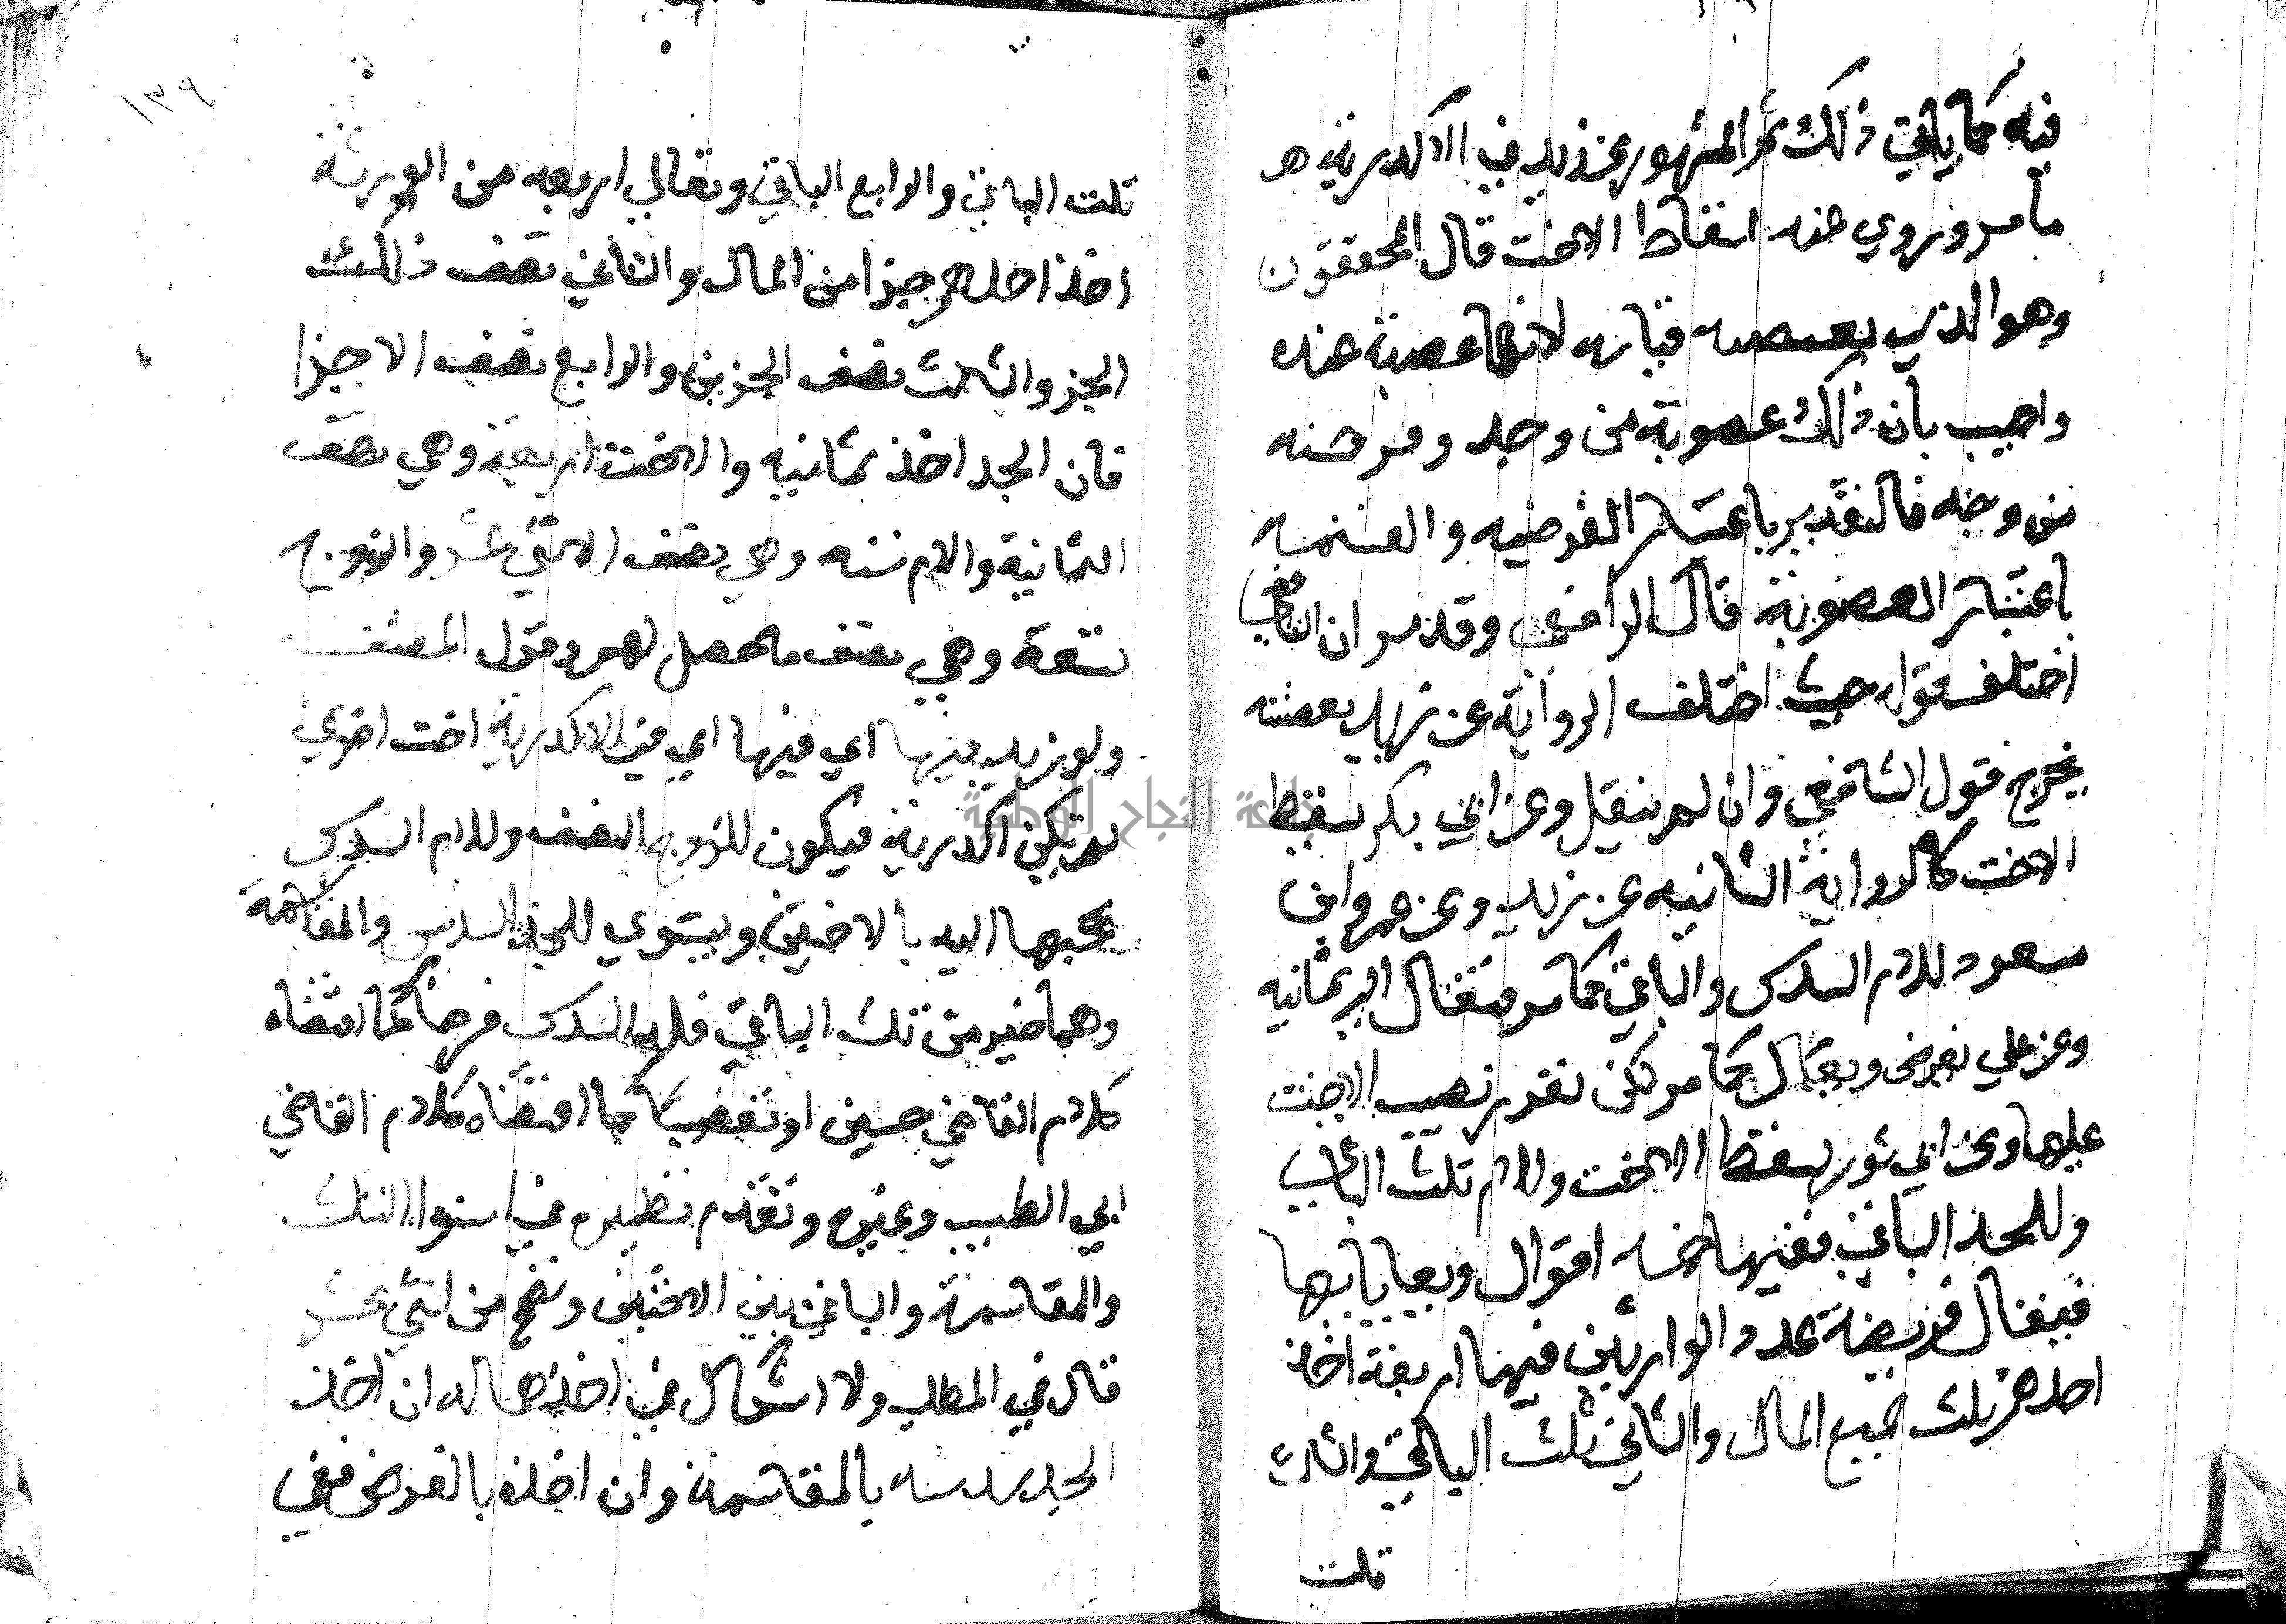 فيه كما ياتي ذلك ثم المشهور عن زيد في الاكدرية هو
ما مر وروي عنه اسقاط الاخت قال المحققون
وهو الذي يقتضيه قياسه لانها عصبة عنده
واجيب بان ذلك عصوبة من وجه وفرضيه
من وجه فالتقدير باعتبار الفرضيه والقسمه
باعتبار العصوبة قال الرافعي وقد مر ان الشافعي
اختلف قوله حيث اختلف الرواية عن زيد بعضه
تخريج قول الشافعي وان لم ينقل وعن ابي بكر يسقط
الاخت كالرواية الثانيه عن زيد وعن عمر وابن
مسعود للام السدس والباقي كما مر فتعال الي ثمانيه
وعن علي نفرض ويعال كما مر لكن نقرر نصيب الاخت
عليها وعن ابي ثور يسقط الاخت وللام ثلث الباقي
وللجد الباقي ففيها خمسه اقوال ويعايا بها
فيقال فريضة عدد الوارثين فيها اربعة اخذ
احدهم ثلث جميع المال والثاني ثلث الباقي والثالث
ثلث
١٣٩
ثلت الباقي والرابع الباقي ويقال اربعه من الورثه
اخذ احدهم جزا من المال والثاني نصف ذلك
الجز والثالث نصف الجزين والرابع نصف الاجزا
فان الجد اخذ ثمانيه والاخت اربعة وهي نصف
الثمانية والام سته وهي نصف الاثني عشر والزوج
تسعة وهي نصف ما حصل لهم وقول المصنف
ولو زيد فيها اي فيها اي في الاكدرية اخت اخري
لم تكن اكدرية فيكون للزوج النصف وللام السدس
لحجبها اليه بالاختين ويستوي للجد السدس والمقاسمة
وهما خير من ثلث الباقي فله السدس فرضا كما اقتضاه
كلام القاضي حسين او تعصيبا كما اقتضاه كلام القاضي
ابي الطيب وغيره وتقدم نظيره في استوا الثلث
والمقاسمة والباقي بين الاختين وتصح من اثني عشر
قال في المطلب ولا اشكال في اخذهما له ان اخذ
الجد سدسه بالمقاسمة وان اخذه بالفرض ففي
جامعة النجاح الوطنية